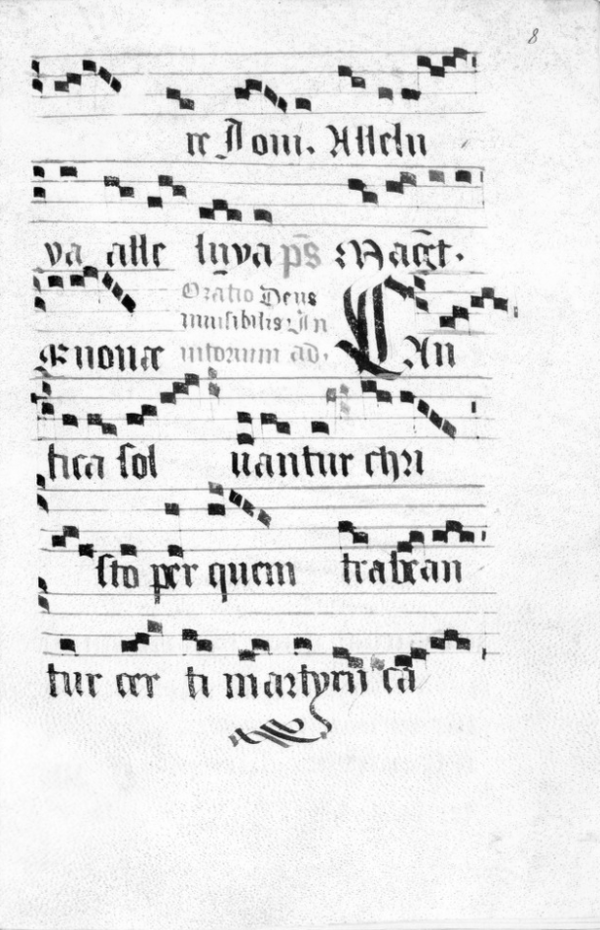 8
re Dom. Allelu
ya alle luya p̄s Magt.
Euouae Oratio Deus
inuisibilis: In
uitorum ad. CAn
tica sol uantur chri
sto per quem trabean
tur cer ti martyrij ca